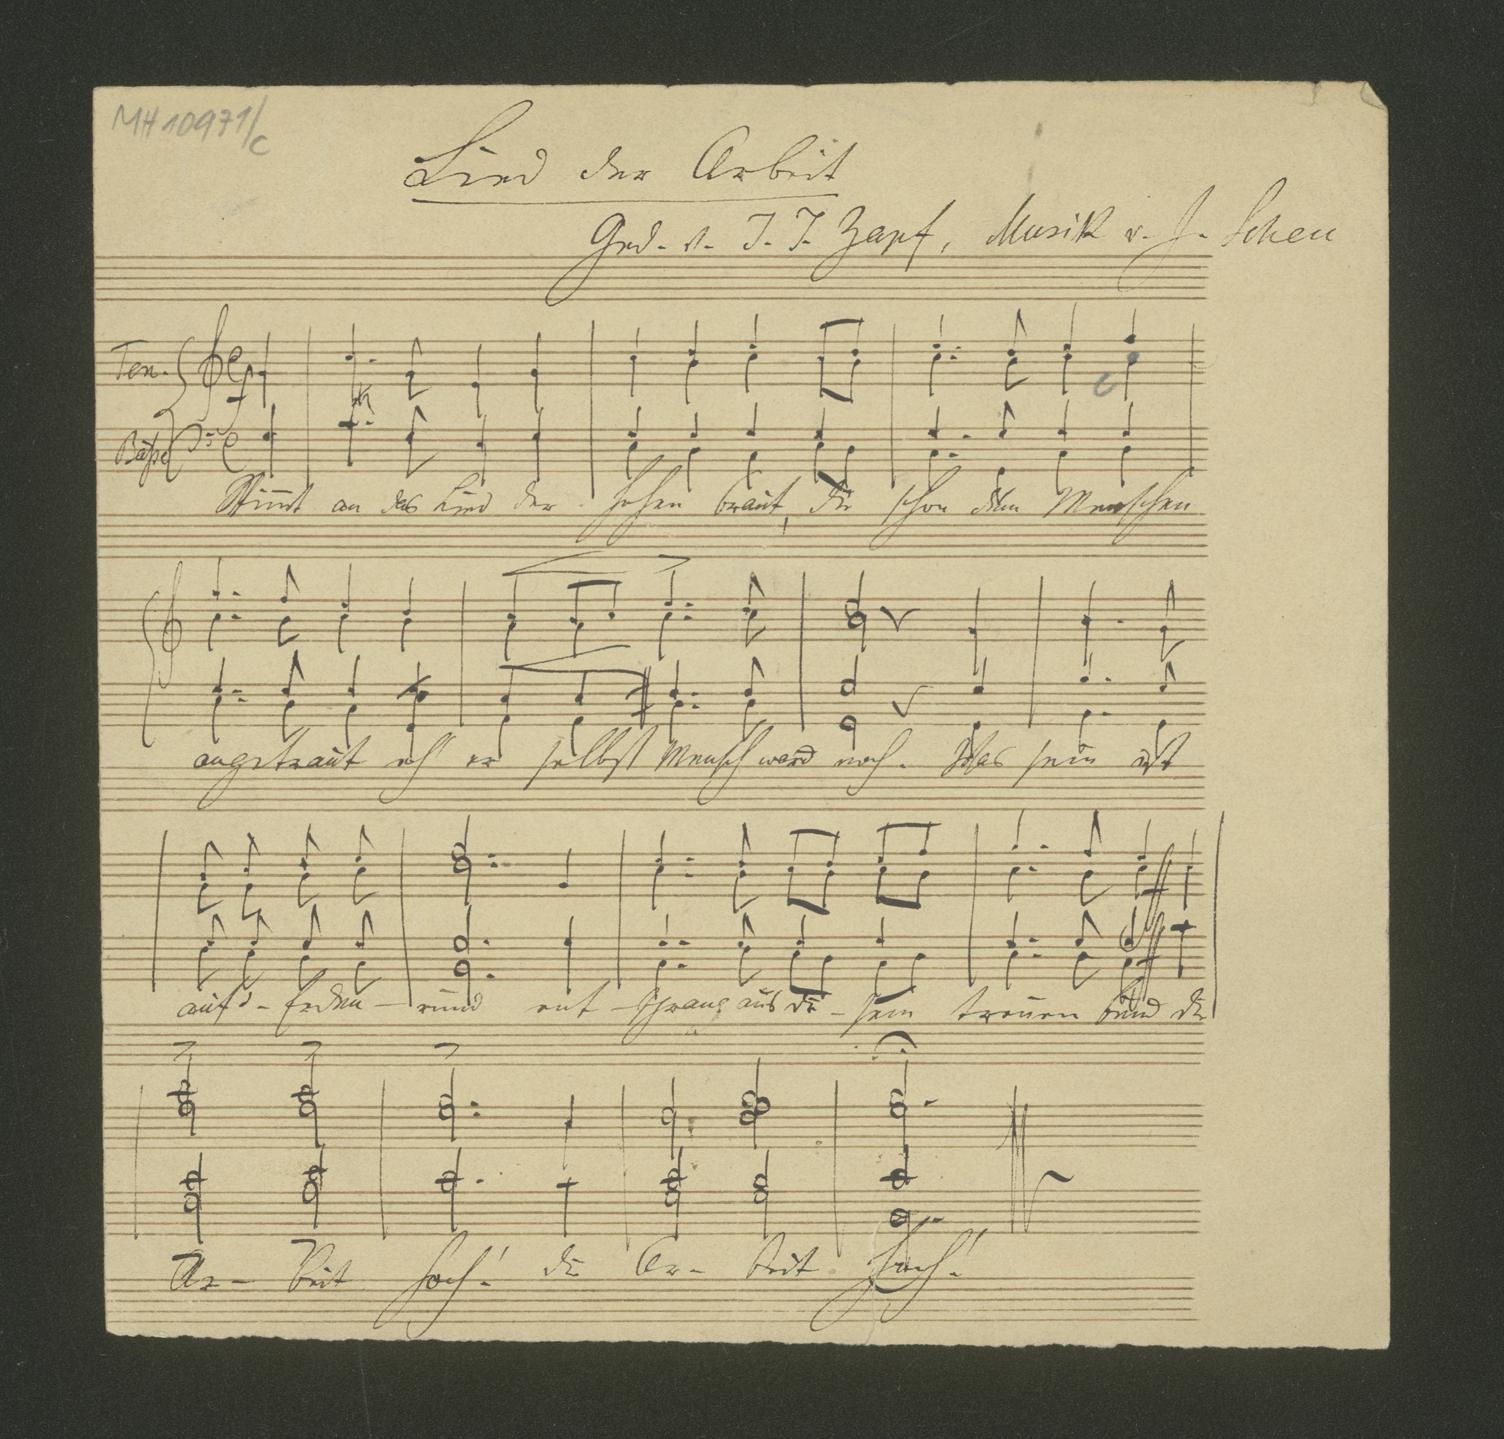 MH 10971/c
Lied der Arbeit
Ged. v. J. J. Zapf, Musik v. J. Scheu
Ten.
Bäße
Stimt an das Lied der hohen braut, die schon dem Menschen
angetraut eh er selbst Mensch ward noch. Was sein ist
auf d- Erden - rund ent - sprang aus die - sem treuen bund die
Ar - beit hoch! die Ar - beit hoch!